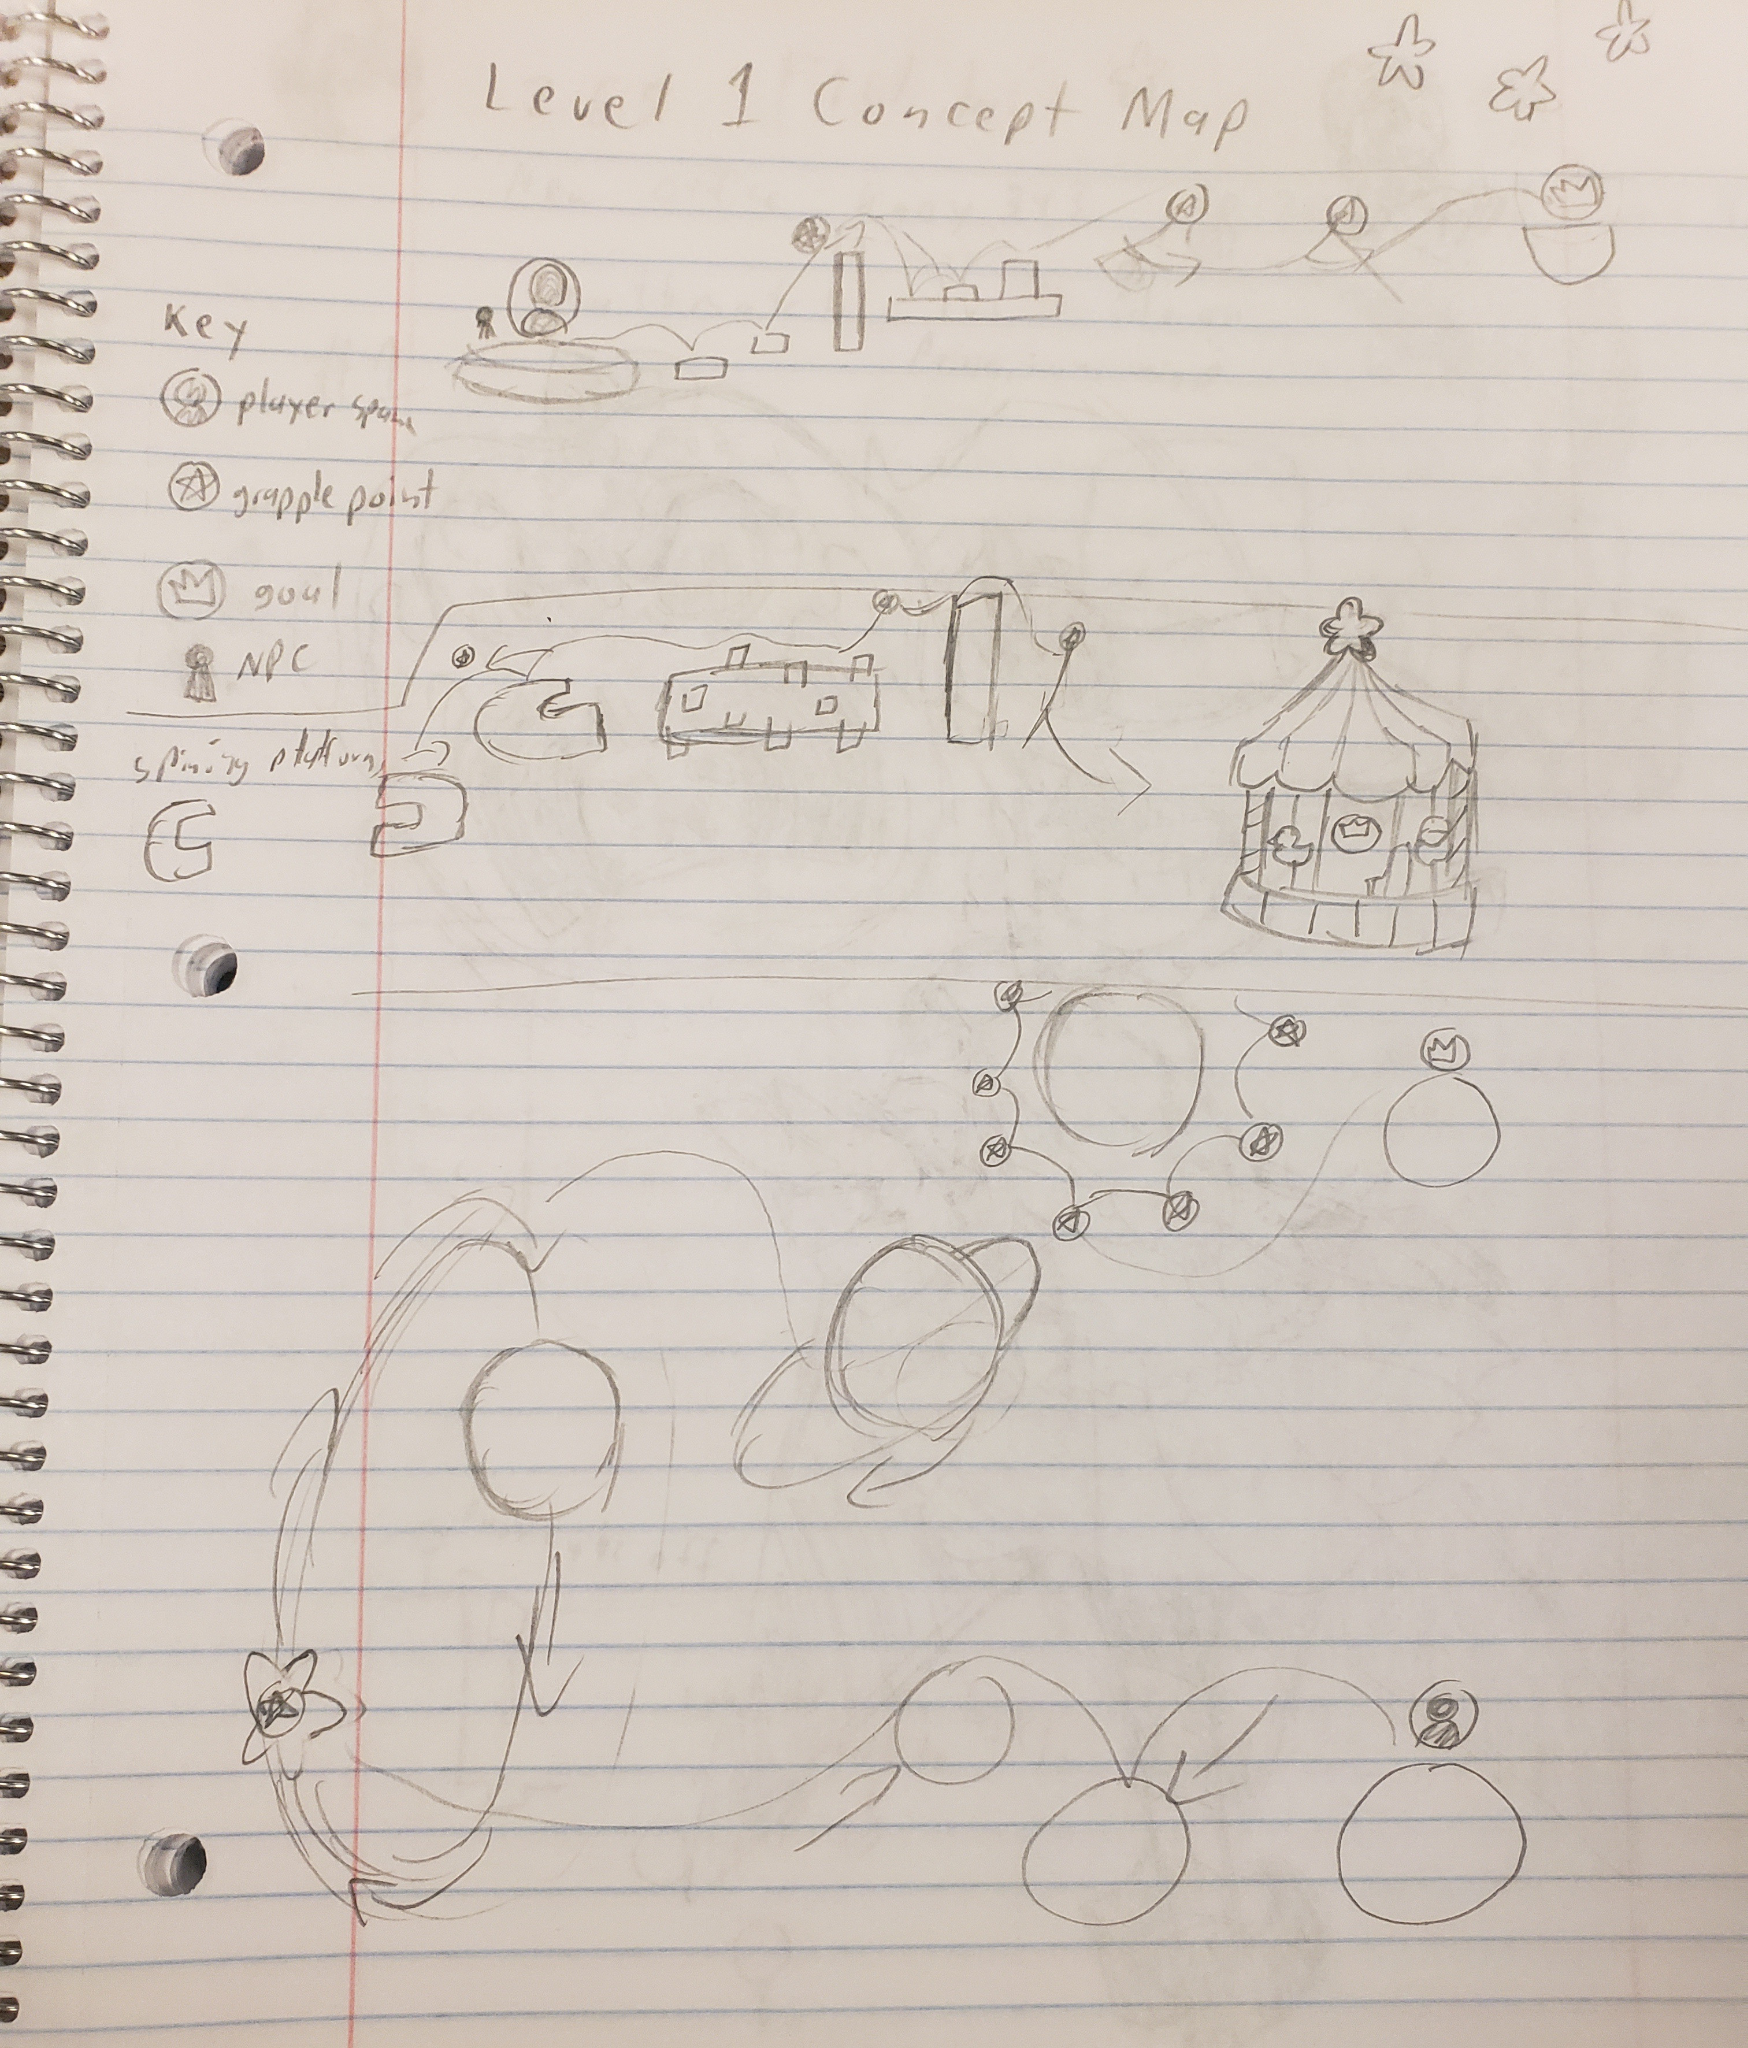 Level 1 Concept Map
Key
player spawn
grapple point
goal
NPC
spining platform